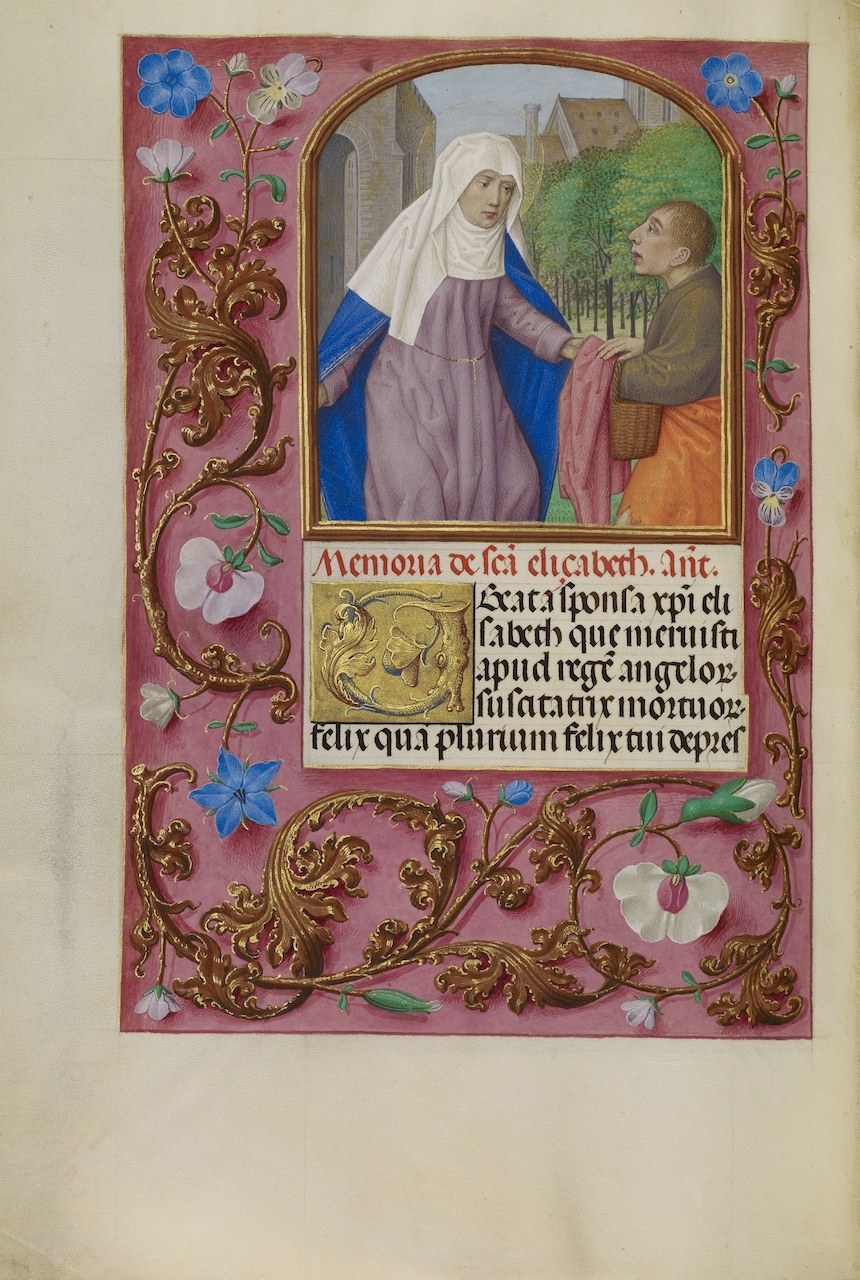 Memoria de scā elizabeth. Añt.
O Beata sponsa xp̄i eli
sabeth que meruisti
apud regē angeloꝝ
suscitatrix mortuoꝝ
felix quā plurium felix tui depres